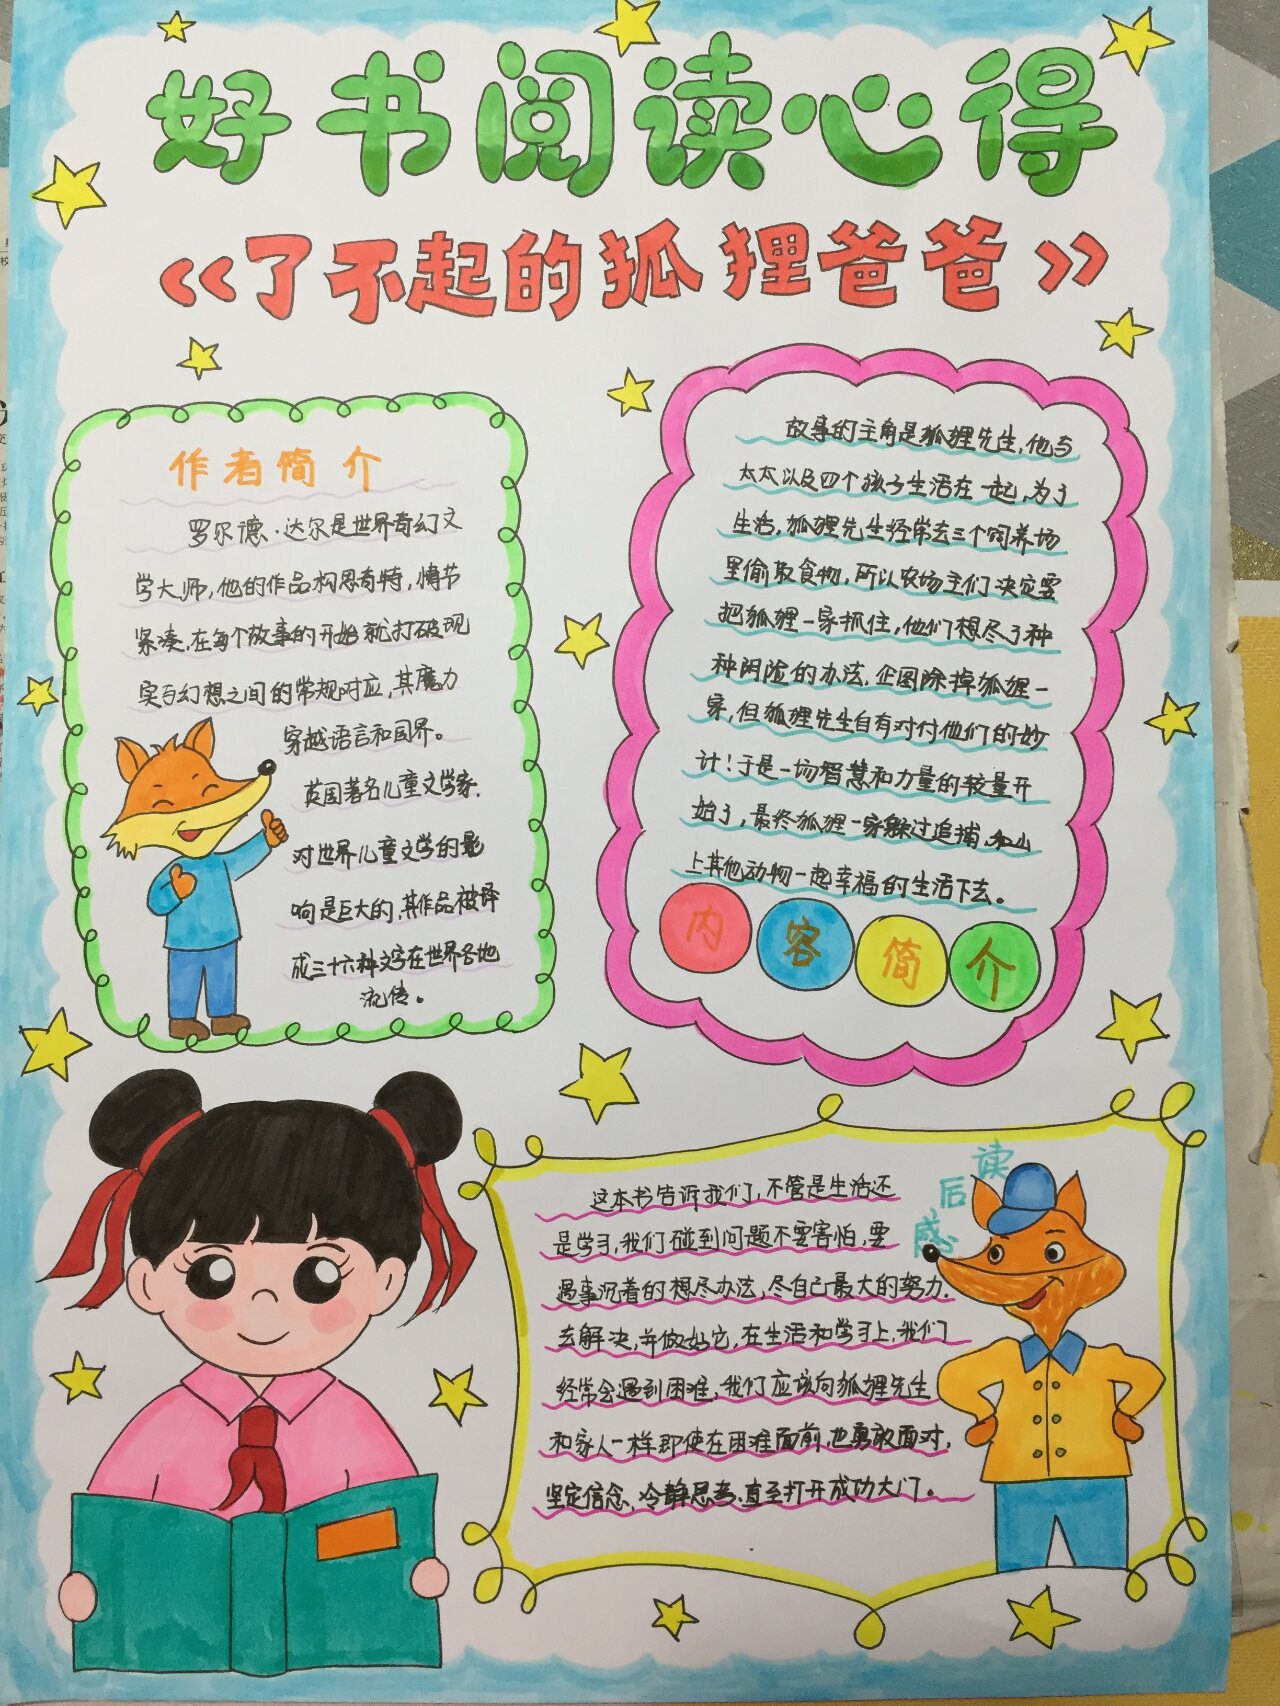 好书阅读心得
《了不起的狐狸爸爸》
作者简介
罗尔德·达尔是世界奇幻文
学大师,他的作品构思奇特,情节
紧凑,在每个故事的开始就打破现
实与幻想之间的常规对应,其魔力
穿越语言和国界。
英国著名儿童文学家,
对世界儿童文学的影
响是巨大的,其作品被译
成三十六种文字在世界各地
流传。
故事的主角是狐狸先生,他与
太太以及四个孩子生活在一起,为了
生活,狐狸先生经常去三个饲养场
里偷取食物,所以农场主们决定要
把狐狸一家抓住,他们想尽了种
种阴险的办法,企图除掉狐狸一
家,但狐狸先生自有对付他们的妙
计!于是一场智慧和力量的较量开
始了,最终狐狸一家躲过追捕,和山
上其他动物一起幸福的生活下去。
内容简介
读后感
这本书告诉我们,不管是生活还
是学习,我们碰到问题不要害怕,要
遇事沉着的想尽办法,尽自己最大的努力,
去解决,并做好它,在生活和学习上,我们
经常会遇到困难,我们应该向狐狸先生
和家人一样即使在困难面前,也勇敢面对,
坚定信念,冷静思考,直至打开成功大门。